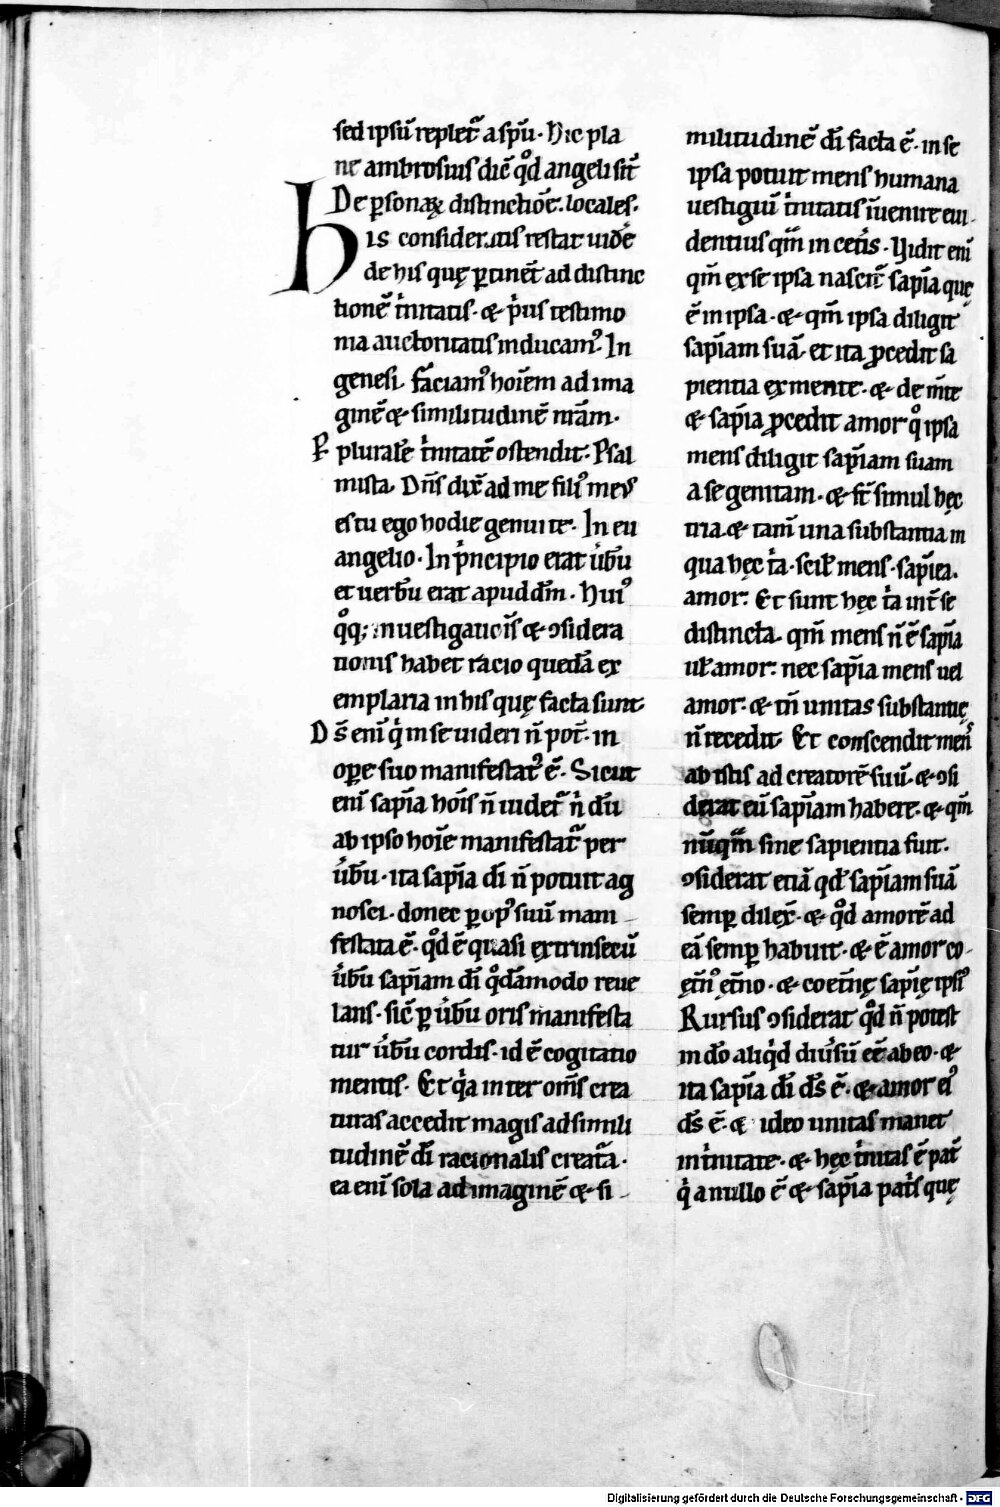 sed ipsū repletᷣ a spū· Hic pla
ne ambrosius diē qͦd angeli sīt
De ꝑsonaꝝ distinctiōē· locales·
His consideratis restat uidē
de his quę ꝑtinēt ad distinc
tionē tͥnitatis· & pͥus testimo
nia auctoritatis inducamꝰ· In
genesi· faciamꝰ hoīem ad ima
ginē & similitudinē nr̄am·
P pluralē tͥnitatē ostendit· Psal
mista· Dn̄s dix̄ ad me filiꝰ meus
es tu ego hodie genui te· In eu
angelio· In pͥncipio erat ūbū
et uerbū erat apud dm̄· Huiꝰ
qͦq; inuestigatiōis & ꝯsidera
tionis habet racio quedā ex
emplaria in his quę facta sunt·
Ds̄ enī qͥ in se uideri n̄ pot̄· in
oꝑe suo manifestatꝰ ē· Sicut
enī sapīa hoīs n̄ uidetᷣ nͥ dū
ab ipso hoīe manifestatᷣ per
ūbū· ita sapīa dī n̄ potuit ag
nosci· donec ꝑ opꝰ suū mani
festata ē· qͦd ē quasi extrinsecū
ūbū sapīam dī qͦdāmodo reue
lans· sic̄ ꝑ ūbū oris manifesta
tur ūbū cordis· id ē cogitatio
mentis· Et qͥa inter om̄s crea
turas accedit magis ad simili
tudinē dī racionalis creat̄a·
ea enī sola ad imaginē & si
militudinē dī facta ē· in se
ipsa potuit mens humana
uestigiū tͥnitatis īuenire eui
dentius qm̄ in cet̄is· Uidit enī
qm̄ ex se ipsa nascitᷣ sapīa quę
ē in ipsa· & qm̄ ipsa diligit
sapīam suā· et ita ꝓcedit sa
pientia ex mente· & de m̄te
& sapīa ꝓcedit amor qͦ ipsa
mens diligit sapīam suam
a se genitam· & st̄ simul hęc
tria· & tam̄ una substantia in
qua hęc tͥa· scil̄ mens· sapīa·
amor· Et sunt hęc tͥa int̄ se
distincta· qm̄ mens n̄ ē sapīa
ul̄ amor· nec sapīa mens uel
amor· & tn̄ unitas substantię
n̄ recedit· Et conscendit mens
ab istis ad creatorē suū· & ꝯsi
derat eū sapīam habere· & qm̄
nūqm̄ sine sapientia fuit·
ꝯsiderat etiā qd̄ sapīam suā
semꝑ dilex̄· & qͦd amorē ad
eā semꝑ habuit· & ē amor co
ęt̄nꝰ ęt̄no· & coet̄nę sapīę ipsiꝰ
Rursus ꝯsiderat qͦd n̄ potest
in dō aliqͥd diūsū eē ab eo· &
ita sapīa dī ds̄ ē· & amor eiꝰ
ds̄ ē· & ideo unitas manet
in tͥnitate· & hęc tͥnitas ē pat̄
qͥ a nullo ē & sapīa pat̄s quę